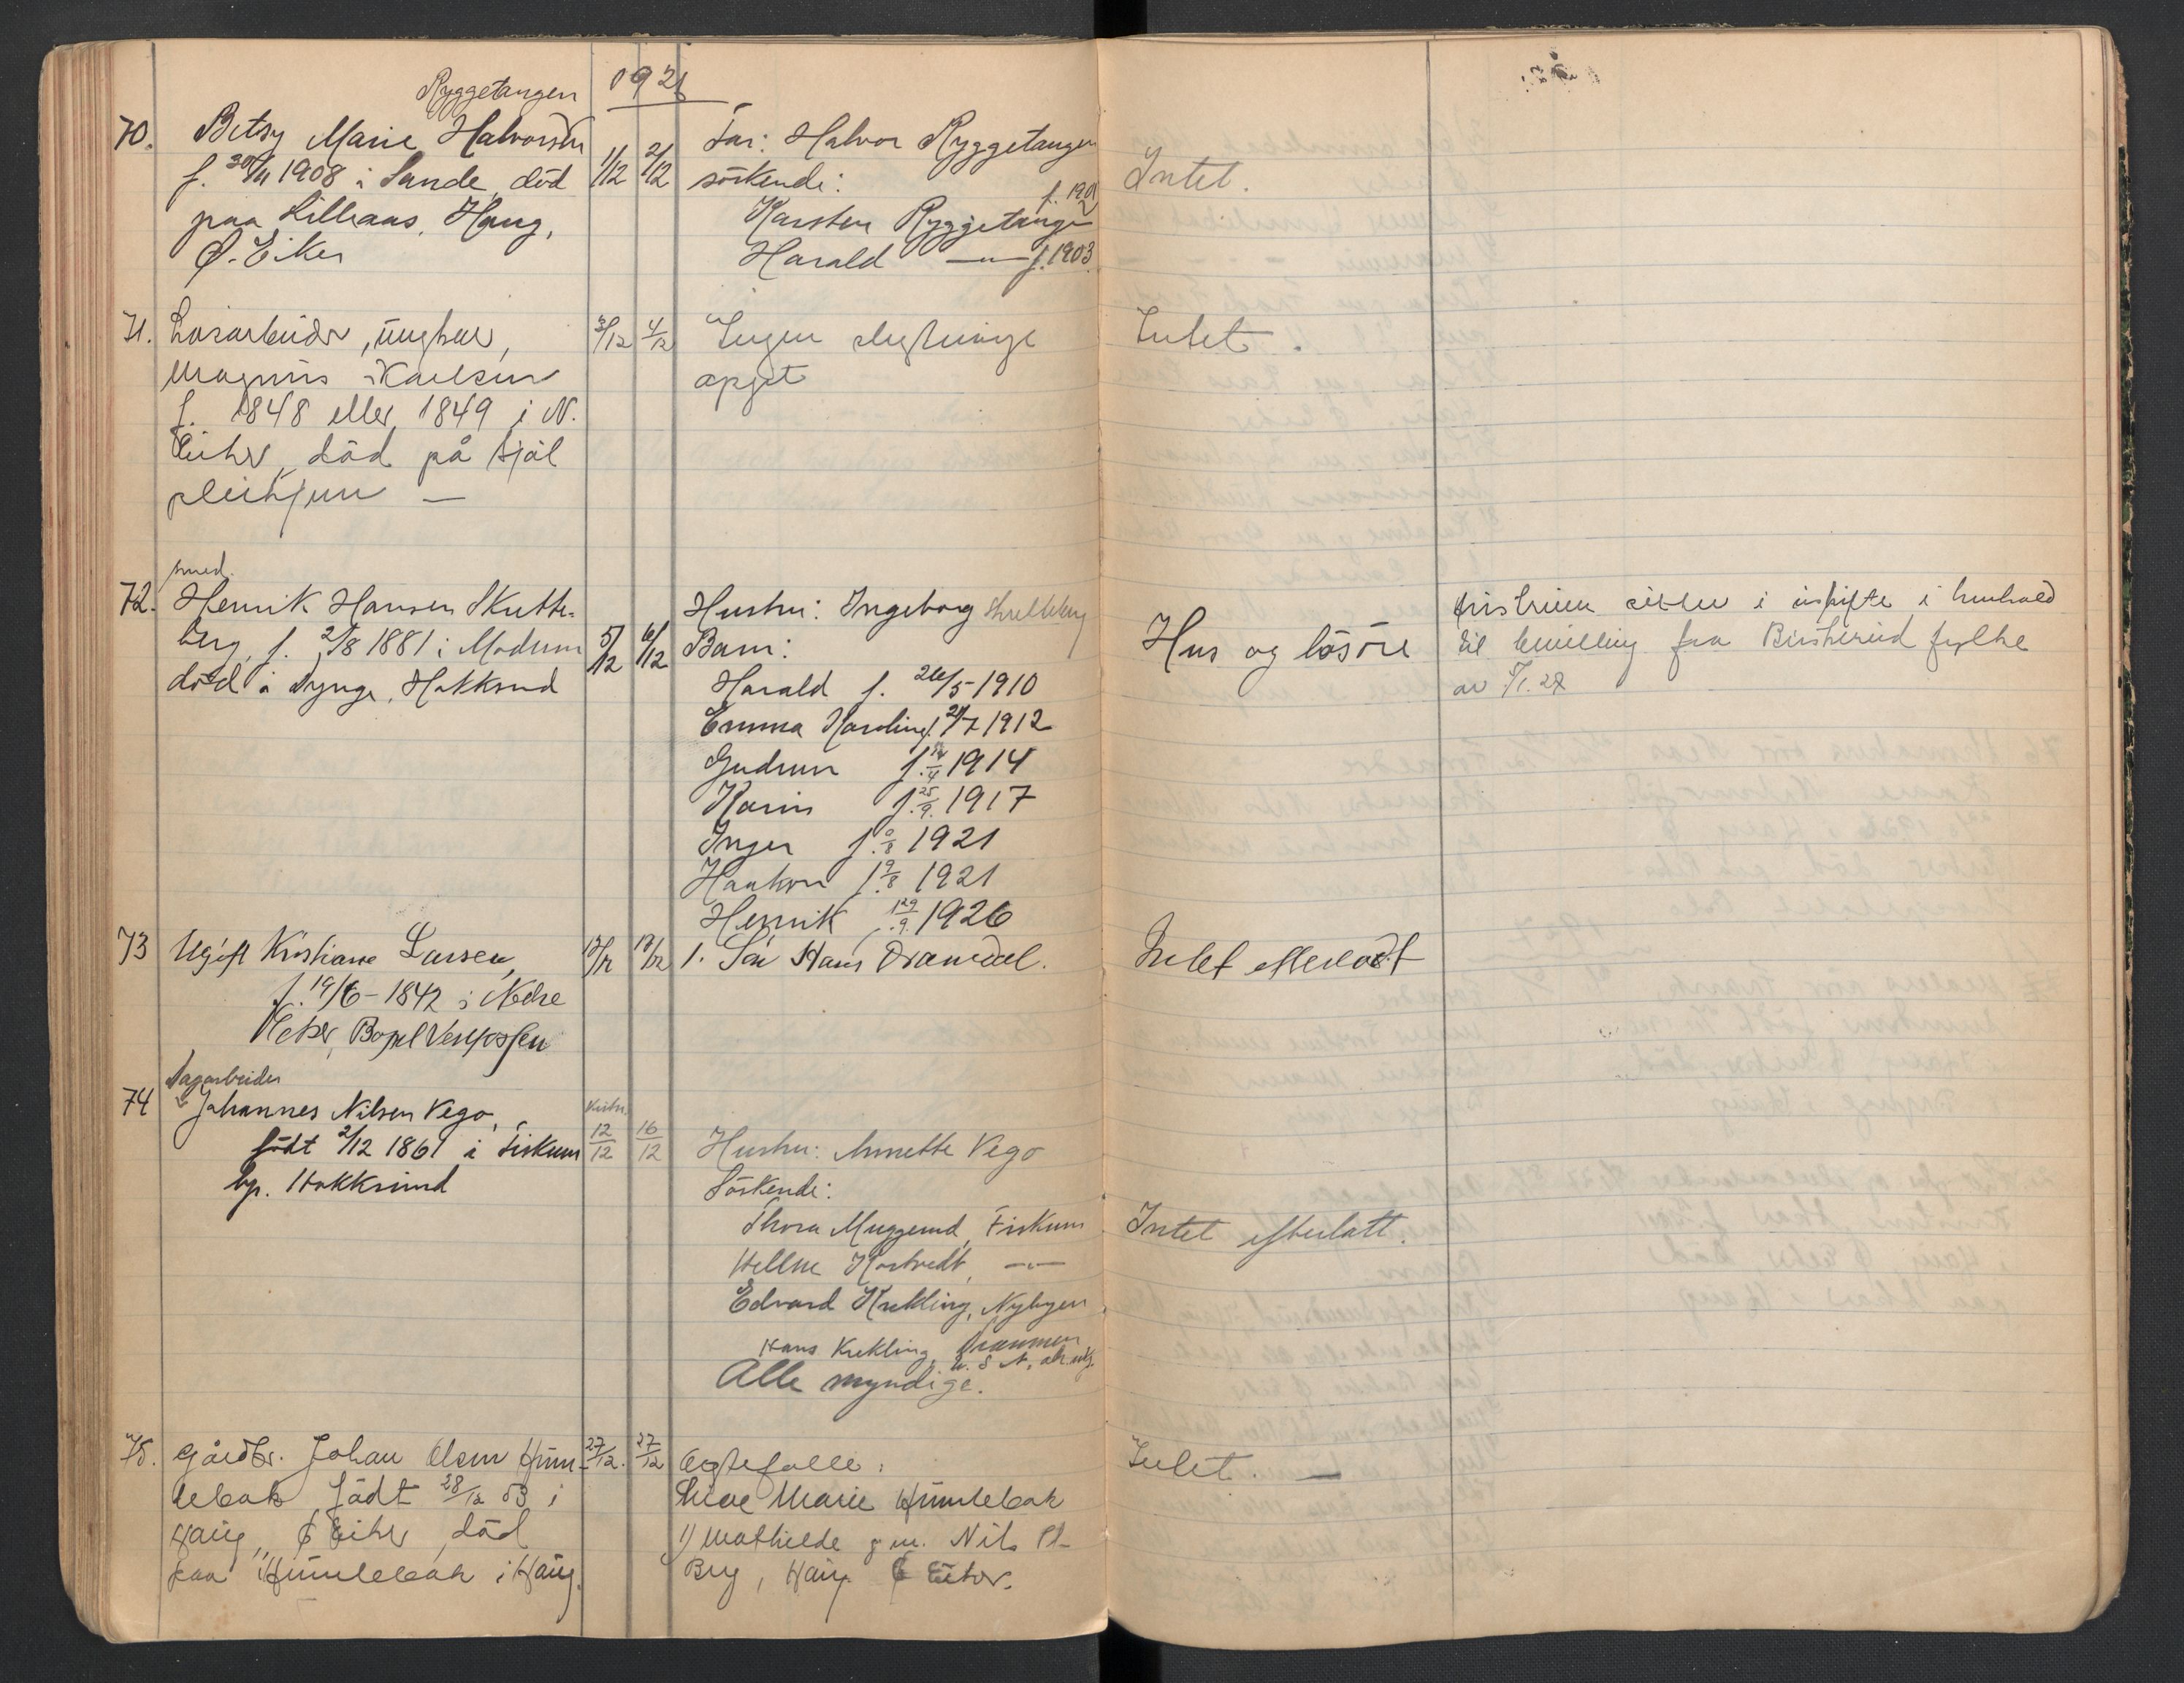 1926
Ryggetangen
70. Betsy Marie Halvorsen 1/12 2/12 Far: Halvor Ryggetangen
f. 20/11 1908 i Sande, död søskende: Intet.
paa Lilleaas, Haug, Karsten Ryggetangen f. 1901
Ø. Eiker Harald —"— f. 1903
71. Løsarbeider, ungkar, 3/12 4/12 Ingen slegtninge Intet.
Magnus Karlsen opgit
f. 1848 eller 1849 i N.
Eiker, död på Hjöl
pleiehjem —
smed.
72. Henrik Hansen Skutte- 5/12 6/12 Hustru: Ingeborg Skutteberg Hus og lösöre
berg, f. 2/8 1881 i Modum Barn:
död i Dynge, Hokksund Harald f. 26/5 1910
Emma Karoline f. 21/7 1912
Gudrun f. 14/4 1914
Karin f. 25/9 1917
Inger f. 9/8 1921
Haakon f. 9/8 1921
Henrik f. 29/9 1926
Hustruen sitter i uskifte i henhold
til bevilling fra Buskerud fylke
av 7/1. 27
73 Ugift Kristiane Larsen, 13/12 13/12 1. Sön Hans Dramdal. Intet efterladt
f. 19/6 - 1842 i Nedre
Eker, Bopel Vestfossen
Dagarbeider
74 Johannes Nilsen Vego, 12/12 16/12 Hustru: Annette Vego
födt 2/12 1861 i Fiskum Söskende:
bp. Hokksund Thora Muggerud, Fiskum Intet efterlatt.
Hellne Kortvedt, —"—
Edvard Krekling, Nybyen
Hans Krekling, Drammen
Alle myndige.
75. Gårdbr. Johan Olsen Hum- 27/12. 27/12 Egtefælle: Intet. —
lebæk födt 28/12 53 i Anne Marie Humlebæk
Haug, Ø Eiker, död 1) Mathilde g.m. Nils
paa Humlebæk i Haug. Berg, Haug Ø Eiker.